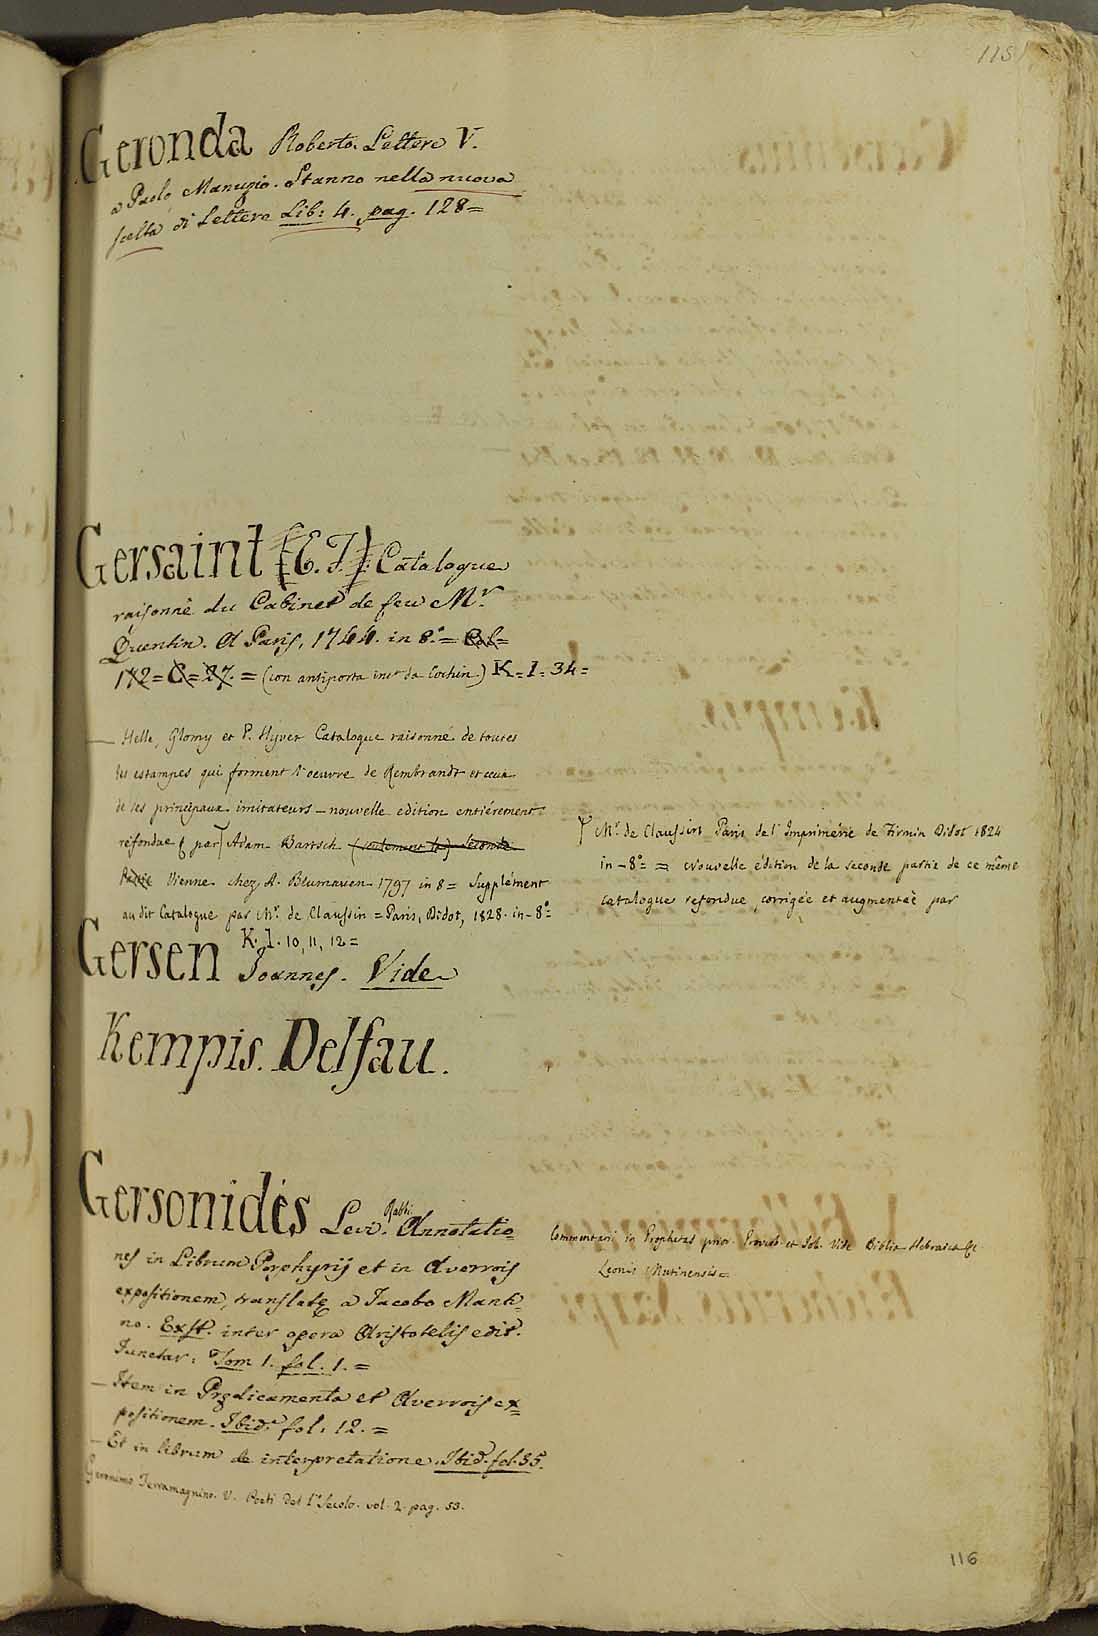 115
Geronda Roberto. Lettere V.
a Paolo Manuzio. Stanno nella nuova
scelta di Lettere Lib: 4. pag. 128=
Gersaint (E. F.) Catalogue
raisonnè du Cabinet de feu Mr.
Quentin. A Paris, 1744. in 8.°=
172 = C = 27. = (con antiporta inc.ta da Cochin) K = I = 34=
— Helle, Glomy et P. Hyver Catalogue raisonné de toutes
les estampes qui forment l'oeuvre de Rembrandt et ceux
de ses principaux imitateurs — nouvelle edition entiérement
refondue (par) Adam Bartsch (seulement la) seconde
Partie Vienne chez A. Blumauer 1797 in 8 = Supplément
au dit Catalogue par Mr. de Claussin = Paris, Didot, 1828. in-8°=
K. I. 10, 11, 12=
Mr. de Claussin Paris de l'Imprimèrie de Firmin Didot 1824
in-8°= = Nouvelle édition de la seconde partie de ce même
catalogue refondue corrigée et augmentée par
Gersen Joannes. Vide
Kempis. Delfau.
Gersonides Levi. Rabbi. Annotatio=
nes in Librum Porphyrij et in Averrois
expositionem, translatę a Jacobo Manti=
no. Exst. inter opera Aristotelis edit.
Junctar: Tom 1. fol. 1. =
— Item in Prędicamenta et Averrois ex=
positionem. Ibid. fol. 12. =
— Et in librum de interpretatione. Ibid. fol. 35.
Commentari in Prophetas prior. Proverb. et Job. Vide Biblia Hebraica
Leonis Mutinensis=
Geronimo Terramagnino. V. Poeti del 1° Secolo. vol. 2. pag. 53.
116